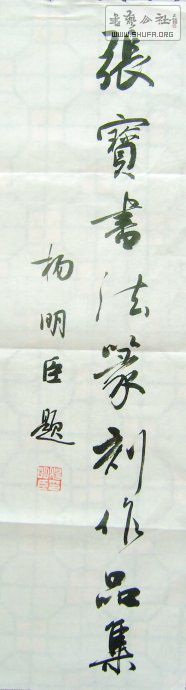 書法公社
www.SHUFA.ORG
張寶書法篆刻作品集
楊明臣題